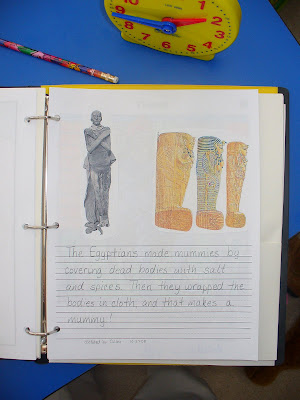 The Egyptians made mummies by
covering dead bodies with salt
and spices. Then they wrapped the
bodies in cloth, and that makes a
mummy!